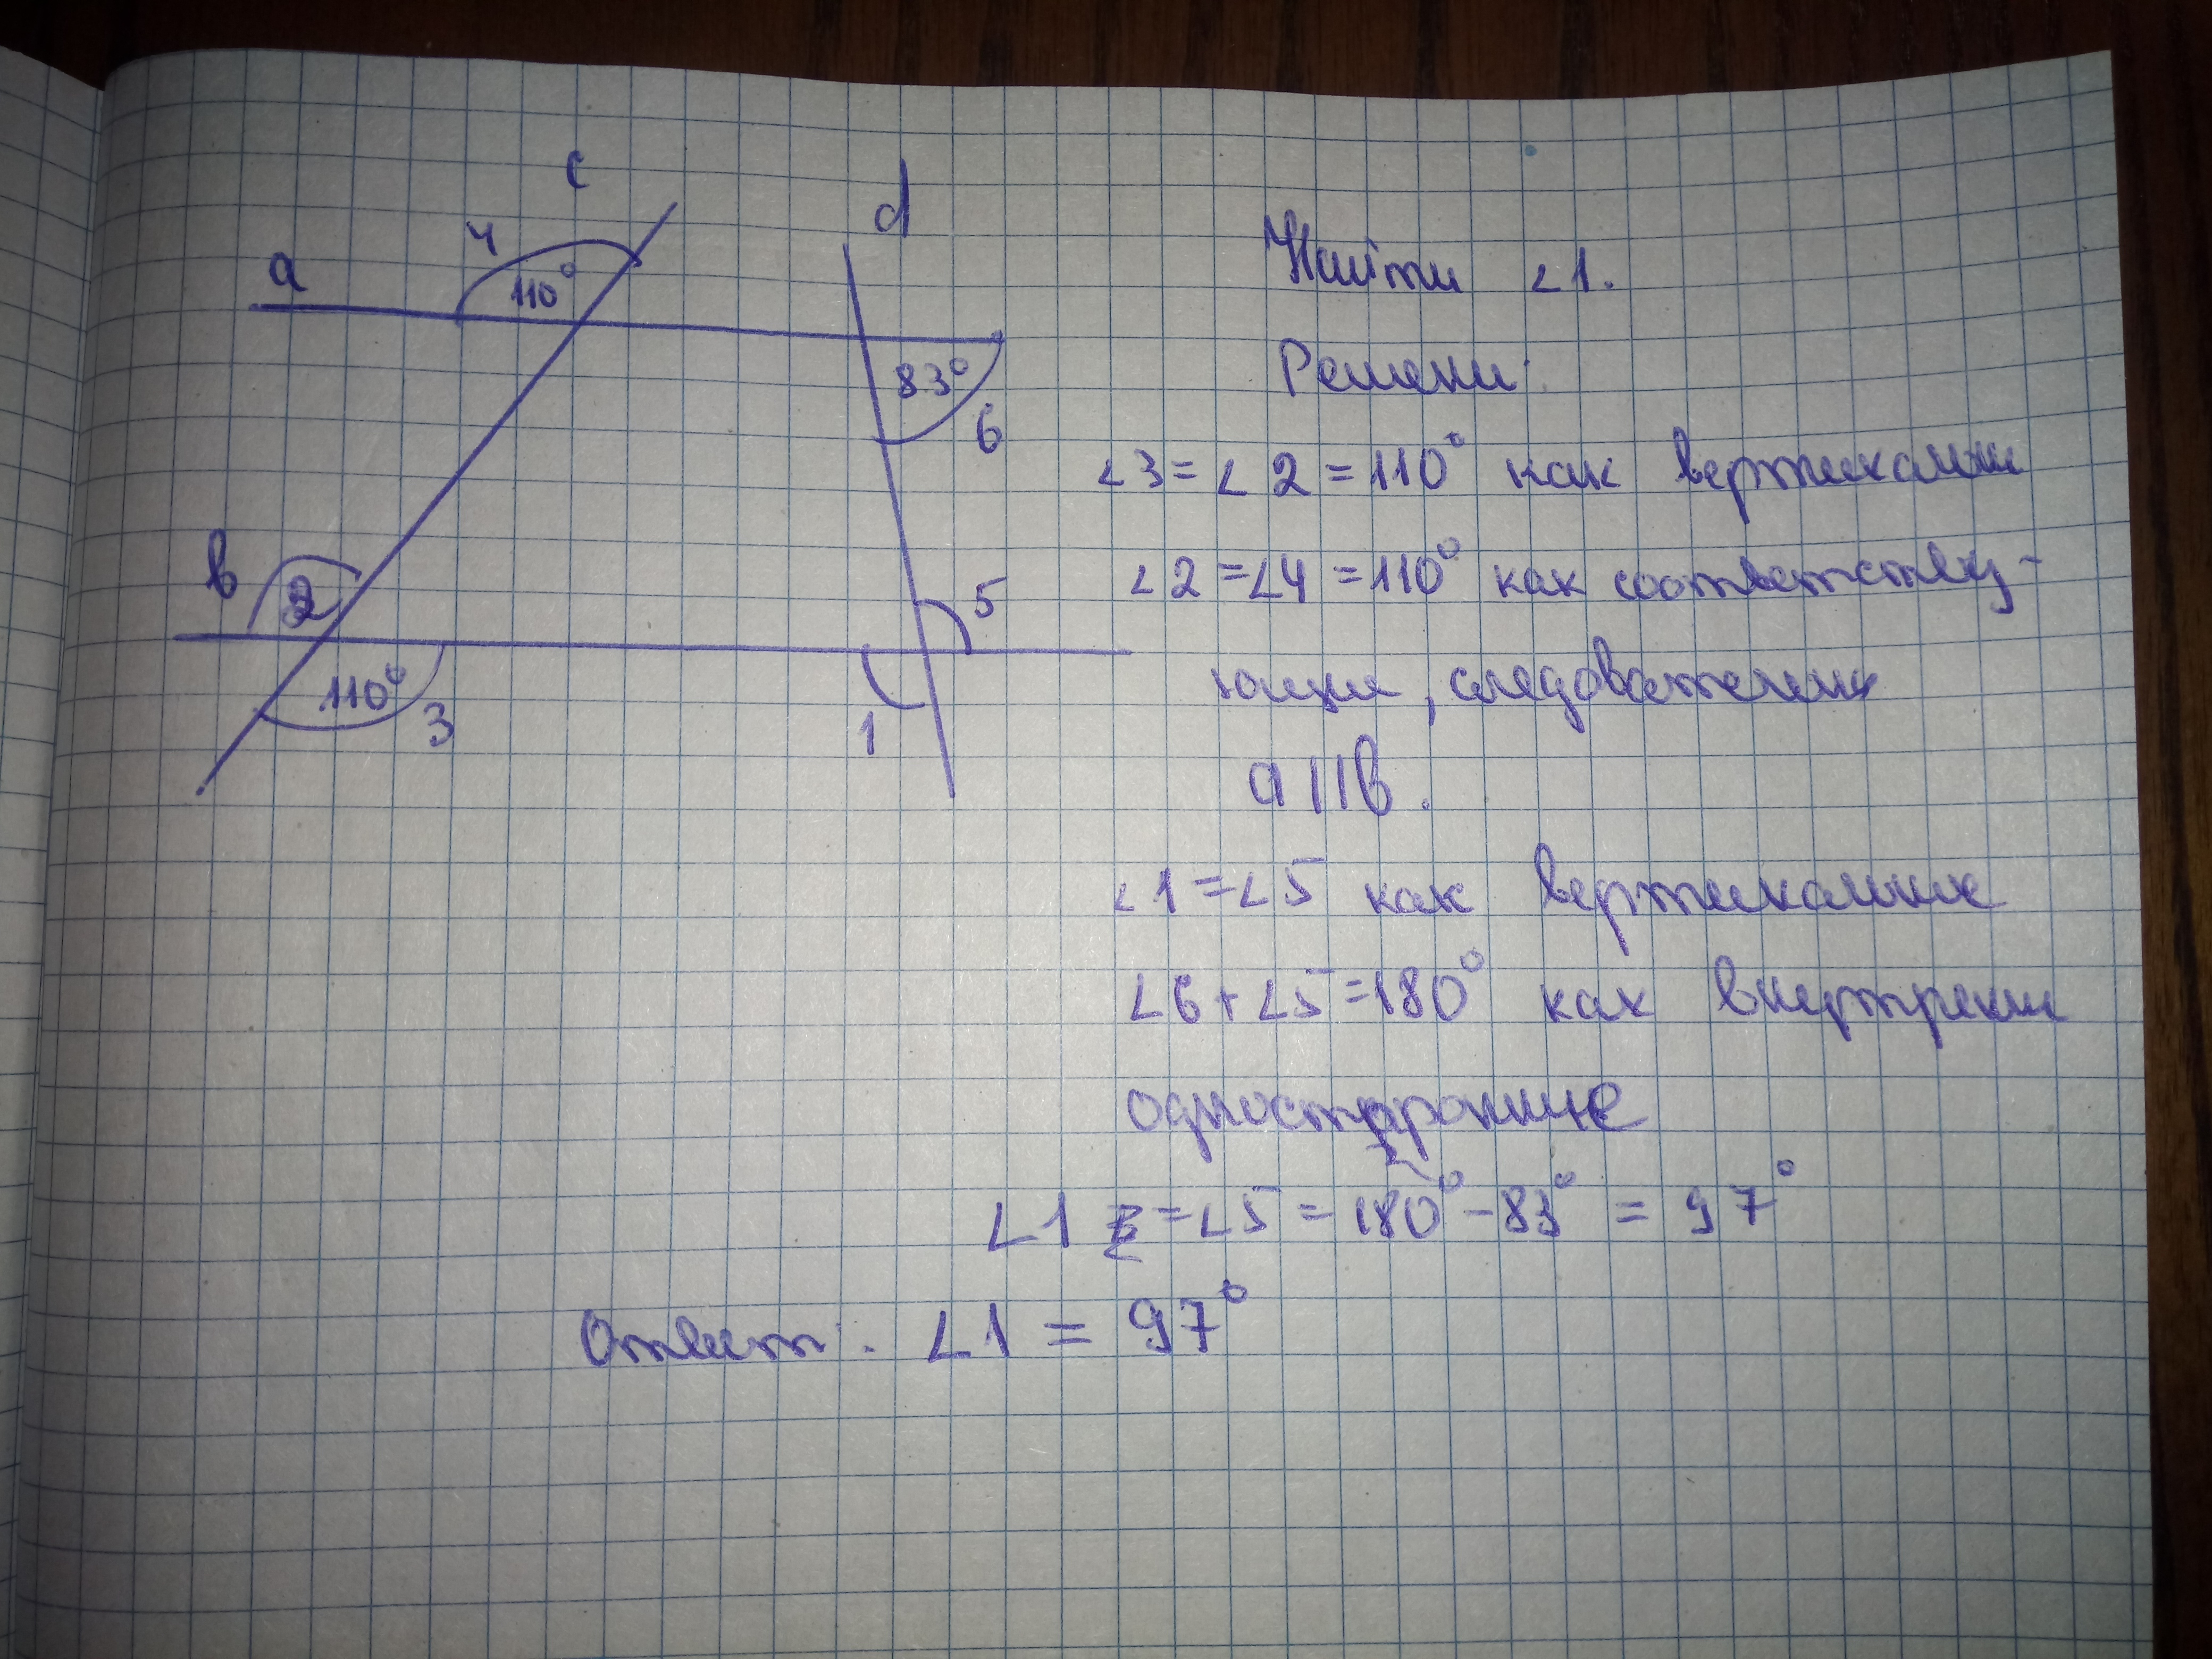 c
d
4
a
110°
83°
6
в
2
5
110°
3
1
Найти ∠1.
Решени:
∠3 = ∠2 = 110° как вертикальн
∠2 = ∠4 = 110° как соответству-
ющие, следовательно
a || в.
∠1 = ∠5 как вертикальные
∠6 + ∠5 = 180° как
односторонние
∠1 = ∠5 = 180° - 83° = 97°
Ответ: ∠1 = 97°